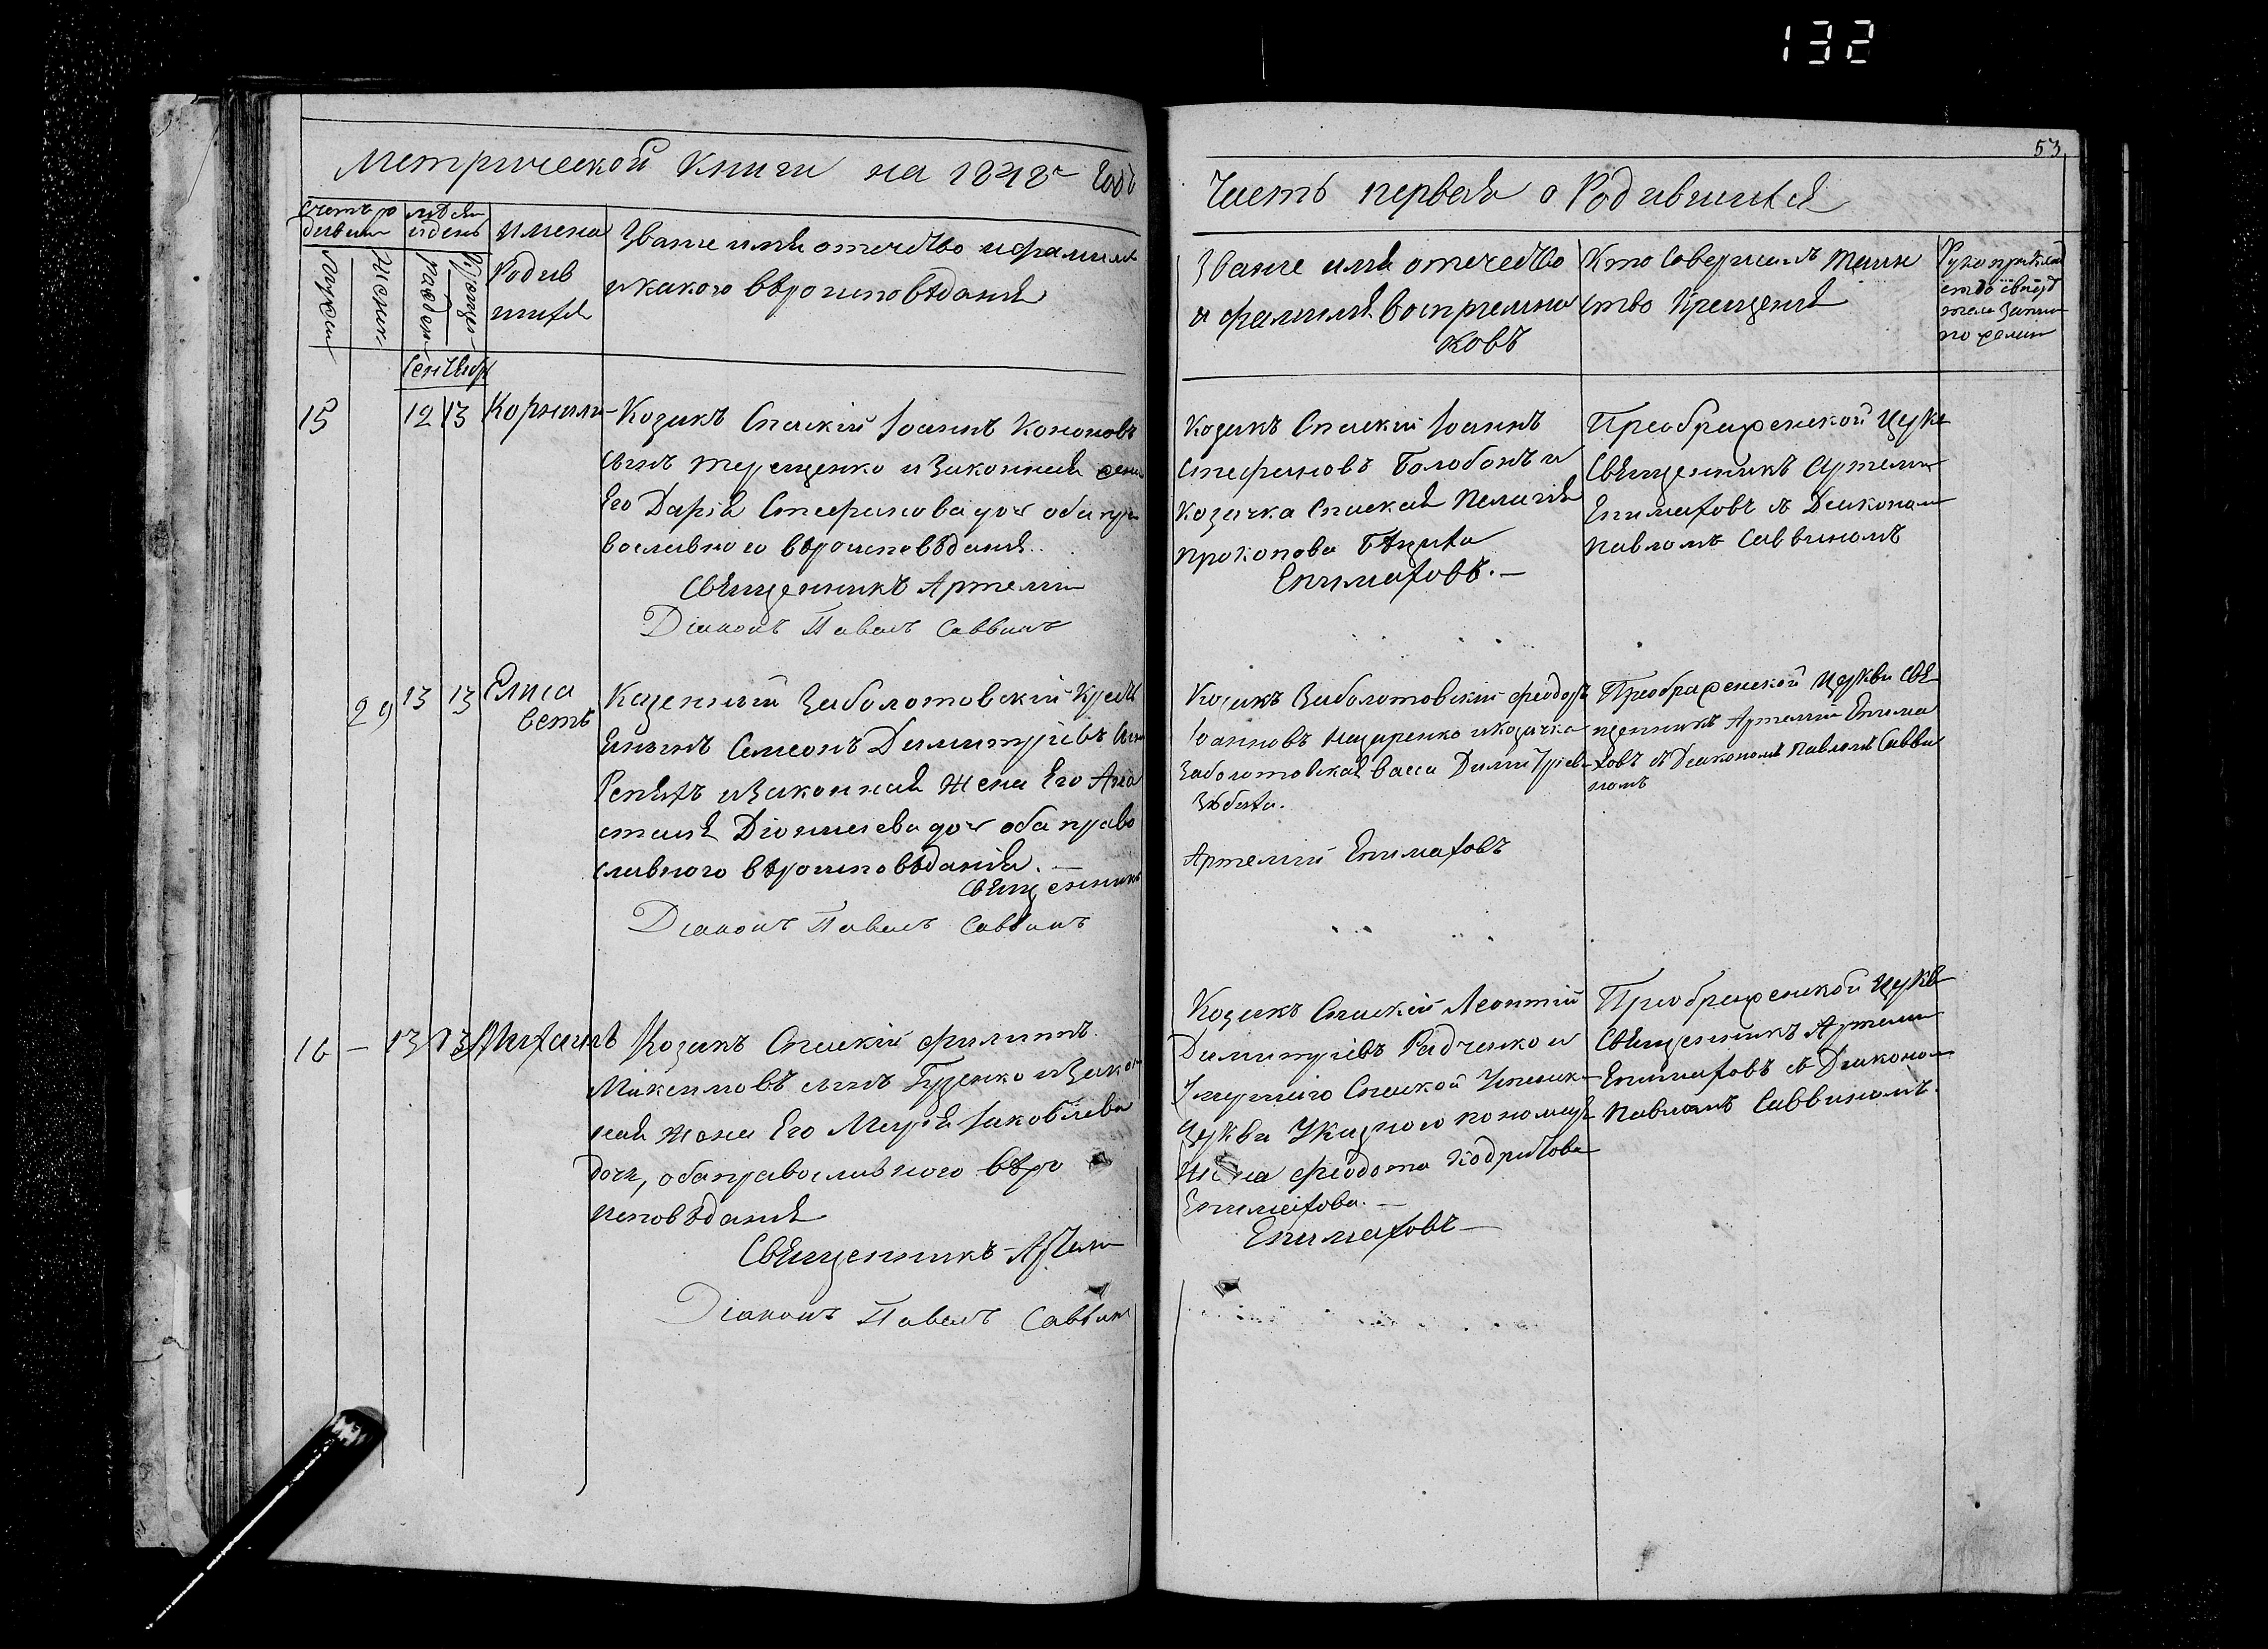 132
53
Метрической Книги на 1848 год
Часть первая о Родившихся
имена
Родив
шихся
Звание имя отечество и фамилия
и какого вероисповѣдания
Звание имя отечество
и фамилия восприемни
ковъ
Кто совершалъ таин
ство крещения
Сентябр
15 12 13 Корнили
Козакъ Спаский Iоаннъ Кононовъ
сынъ Терещенко и законная жена
Его Дария Стефанова доч оба пра
вославного вѣроисповѣдания.
Священникъ Артемий
Дiаконъ Павелъ Саввинъ
Козакъ Спаский Iоаннъ
Стефановъ Болобонъ и
козачка Спаская Пелагия
Прокопова
Епимаховъ.
Преображенской Церкв
Священникъ Артемий
Епимаховъ съ Диконом
Павломъ Саввиномъ
29 13 13 Елиса
ветъ
Казенный Заболотовский
Семеонъ Димитриевъ сын
и законная жена Его Ана
стасия Дiонисиева доч оба право
славного вѣроисповѣданiя.
Священникъ
Дiаконъ Павелъ Саввинъ
Козакъ Заболотовский Феодоръ
Iоанновъ Назаренко и козачка
Заболотовская Васса Димитриев
Артемий Епимаховъ
Преображенской Церкви Свя
щенникъ Артемий Епима
ховъ съ Диакономъ Павломъ Савви
номъ
16 – 13 13 Михаилъ
Козакъ Спаский Филиппъ
Максимовъ сынъ Гузенко и закон
ная жена Его Мария Iаковлева
дочь, оба православного вѣро
исповѣдания
Священникъ Артеми
Дiаконъ Павелъ Саввин
Козакъ Спаский Леонтий
Димитриевъ Радченко и
Умершаго Спаской Успенск
Церкви Указного пономаря
жена Феодота Кодратова
Епимахова.
Епимаховъ
Преображенской Церкв
Священникъ Артеми
Епимаховъ съ Диконом
Павломъ Саввиномъ.